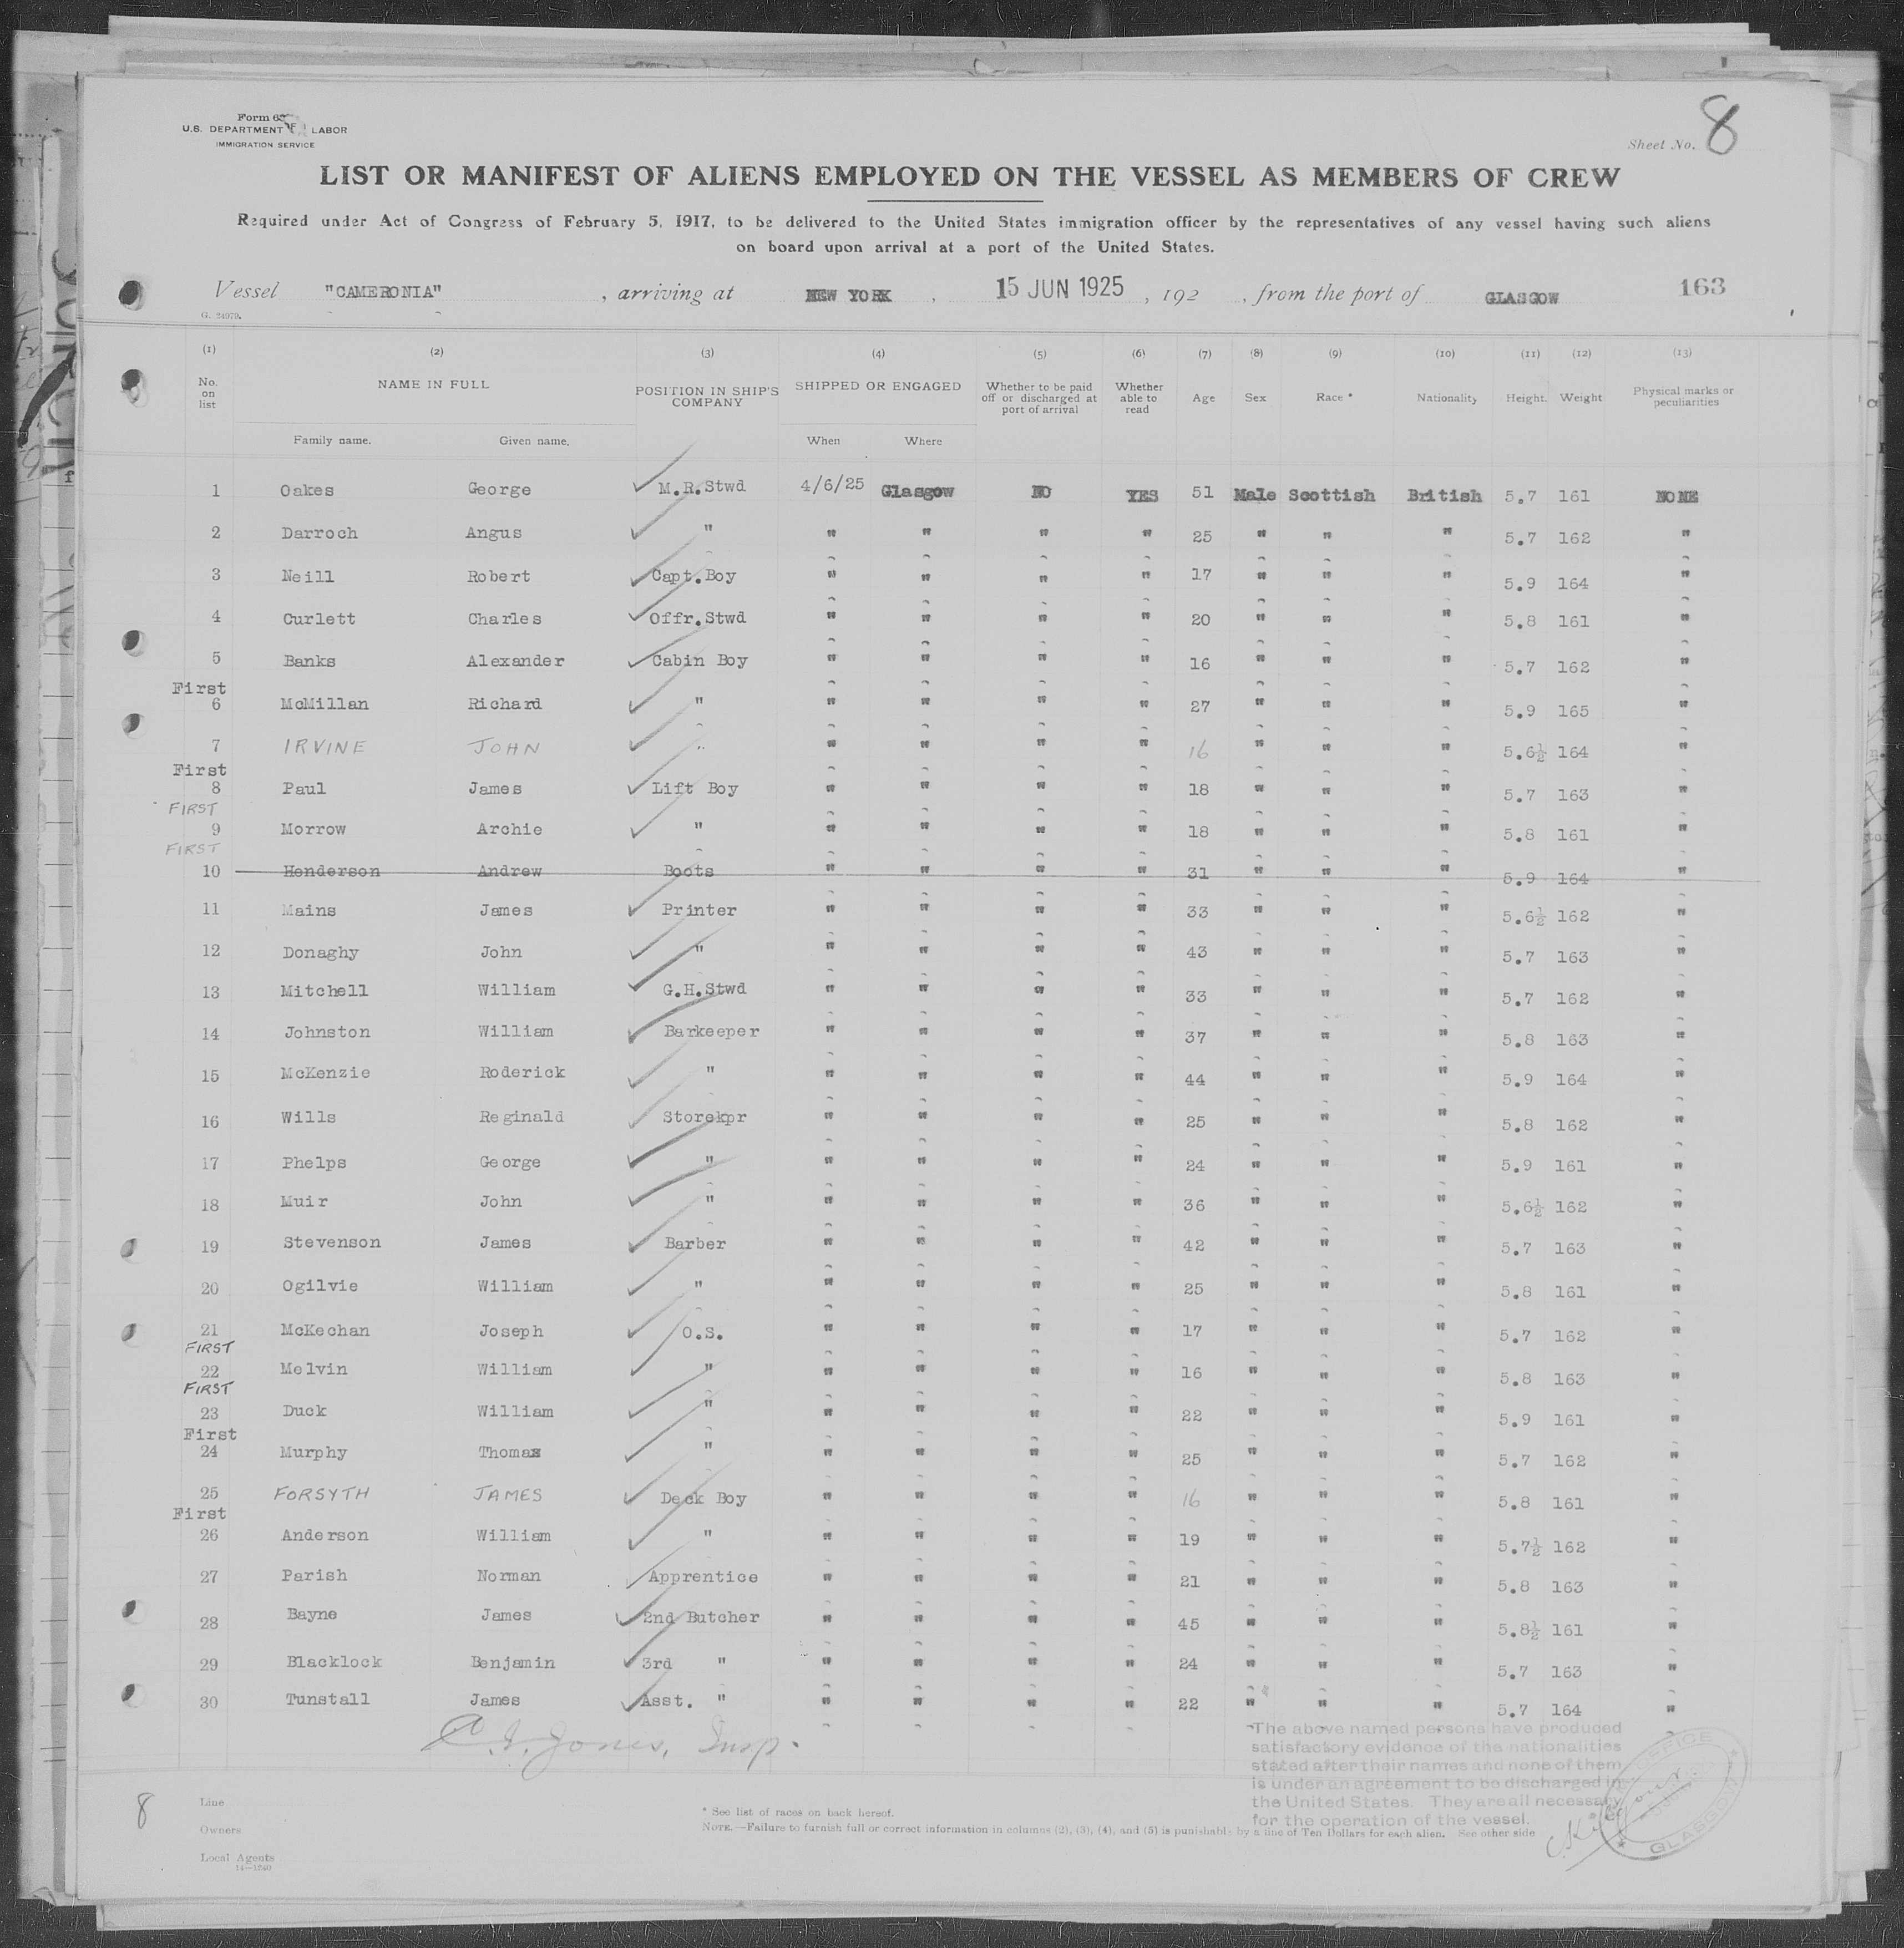 Form 6
U.S. DEPARTMENT OF LABOR
IMMIGRATION SERVICE
Sheet No. 8
LIST OR MANIFEST OF ALIENS EMPLOYED ON THE VESSEL AS MEMBERS OF CREW
Required under Act of Congress of February 5, 1917, to be delivered to the United States immigration officer by the representatives of any vessel having such aliens
on board upon arrival at a port of the United States.
Vessel "CAMERONIA", arriving at NEW YORK, 15 JUN 1925, 192 , from the port of GLASGOW 163
G. 24979.
(1) (2) (3) (4) (5) (6) (7) (8) (9) (10) (11) (12) (13)
No. on list NAME IN FULL POSITION IN SHIP'S COMPANY SHIPPED OR ENGAGED Whether to be paid off or discharged at port of arrival Whether able to read Age Sex Race * Nationality Height. Weight Physical marks or peculiarities
Family name. Given name. When Where
1 Oakes George M.R.Stwd 4/6/25 Glasgow NO YES 51 Male Scottish British 5.7 161 NONE
2 Darroch Angus " " " " " 25 " " " 5.7 162 "
3 Neill Robert Capt.Boy " " " " 17 " " " 5.9 164 "
4 Curlett Charles Offr.Stwd " " " " 20 " " " 5.8 161 "
5 Banks Alexander Cabin Boy " " " " 16 " " " 5.7 162 "
First
6 McMillan Richard " " " " " 27 " " " 5.9 165 "
7 IRVINE JOHN " " " " " 16 " " " 5.6½ 164 "
First
8 Paul James Lift Boy " " " " 18 " " " 5.7 163 "
FIRST
9 Morrow Archie " " " " " 18 " " " 5.8 161 "
FIRST
10 Henderson Andrew Boots " " " " 31 " " " 5.9 164 "
11 Mains James Printer " " " " 33 " " " 5.6½ 162 "
12 Donaghy John " " " " " 43 " " " 5.7 163 "
13 Mitchell William G.H.Stwd " " " " 33 " " " 5.7 162 "
14 Johnston William Barkeeper " " " " 37 " " " 5.8 163 "
15 McKenzie Roderick " " " " " 44 " " " 5.9 164 "
16 Wills Reginald Storekpr " " " " 25 " " " 5.8 162 "
17 Phelps George " " " " " 24 " " " 5.9 161 "
18 Muir John " " " " " 36 " " " 5.6½ 162 "
19 Stevenson James Barber " " " " 42 " " " 5.7 163 "
20 Ogilvie William " " " " " 25 " " " 5.8 161 "
21 McKechan Joseph O.S. " " " " 17 " " " 5.7 162 "
FIRST
22 Melvin William " " " " " 16 " " " 5.8 163 "
FIRST
23 Duck William " " " " " 22 " " " 5.9 161 "
First
24 Murphy Thomas " " " " " 25 " " " 5.7 162 "
25 FORSYTH JAMES Deck Boy " " " " 16 " " " 5.8 161 "
First
26 Anderson William " " " " " 19 " " " 5.7½ 162 "
27 Parish Norman Apprentice " " " " 21 " " " 5.8 163 "
28 Bayne James 2nd Butcher " " " " 45 " " " 5.8½ 161 "
29 Blacklock Benjamin 3rd " " " " " 24 " " " 5.7 163 "
30 Tunstall James Asst. " " " " " 22 " " " 5.7 164 "
Jones, Insp.
The above named persons have produced
satisfactory evidence of the nationalities
stated after their names and none of them
is under an agreement to be discharged in
the United States. They are all necessary
for the operation of the vessel.
OFFICE GLASGOW
8
Line
Owners
Local Agents
14—1240
* See list of races on back hereof.
NOTE.—Failure to furnish full or correct information in columns (2), (3), (4), and (5) is punishable by a fine of Ten Dollars for each alien. See other side